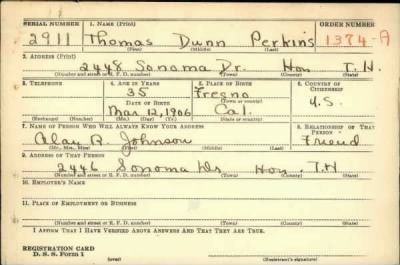 SERIAL NUMBER 1. NAME (Print) ORDER NUMBER
2911 Thomas Dunn Perkins 1374-A
(First) (Middle) (Last)
2. ADDRESS (Print)
2448 Sonoma Dr. Hon T.H.
(Number and street or R. F. D. number) (Town) (County) (State)
3. TELEPHONE 4. AGE IN YEARS 5. PLACE OF BIRTH 6. COUNTRY OF CITIZENSHIP
35 Fresno
DATE OF BIRTH (Town or county) U.S.
Mar 12, 1906 Cal.
(Exchange) (Number) (Mo.) (Day) (Yr.) (State or country)
7. NAME OF PERSON WHO WILL ALWAYS KNOW YOUR ADDRESS 8. RELATIONSHIP OF THAT PERSON
Alan B. Johnson Friend
(Mr., Mrs., Miss) (First) (Middle) (Last)
9. ADDRESS OF THAT PERSON
2446 Sonoma Dr Hon. T.H
(Number and street or R. F. D. number) (Town) (County) (State)
10. EMPLOYER'S NAME
11. PLACE OF EMPLOYMENT OR BUSINESS
(Number and street or R. F. D. number) (Town) (County) (State)
I AFFIRM THAT I HAVE VERIFIED ABOVE ANSWERS AND THAT THEY ARE TRUE.
REGISTRATION CARD
D. S. S. Form 1 (Registrant's signature)